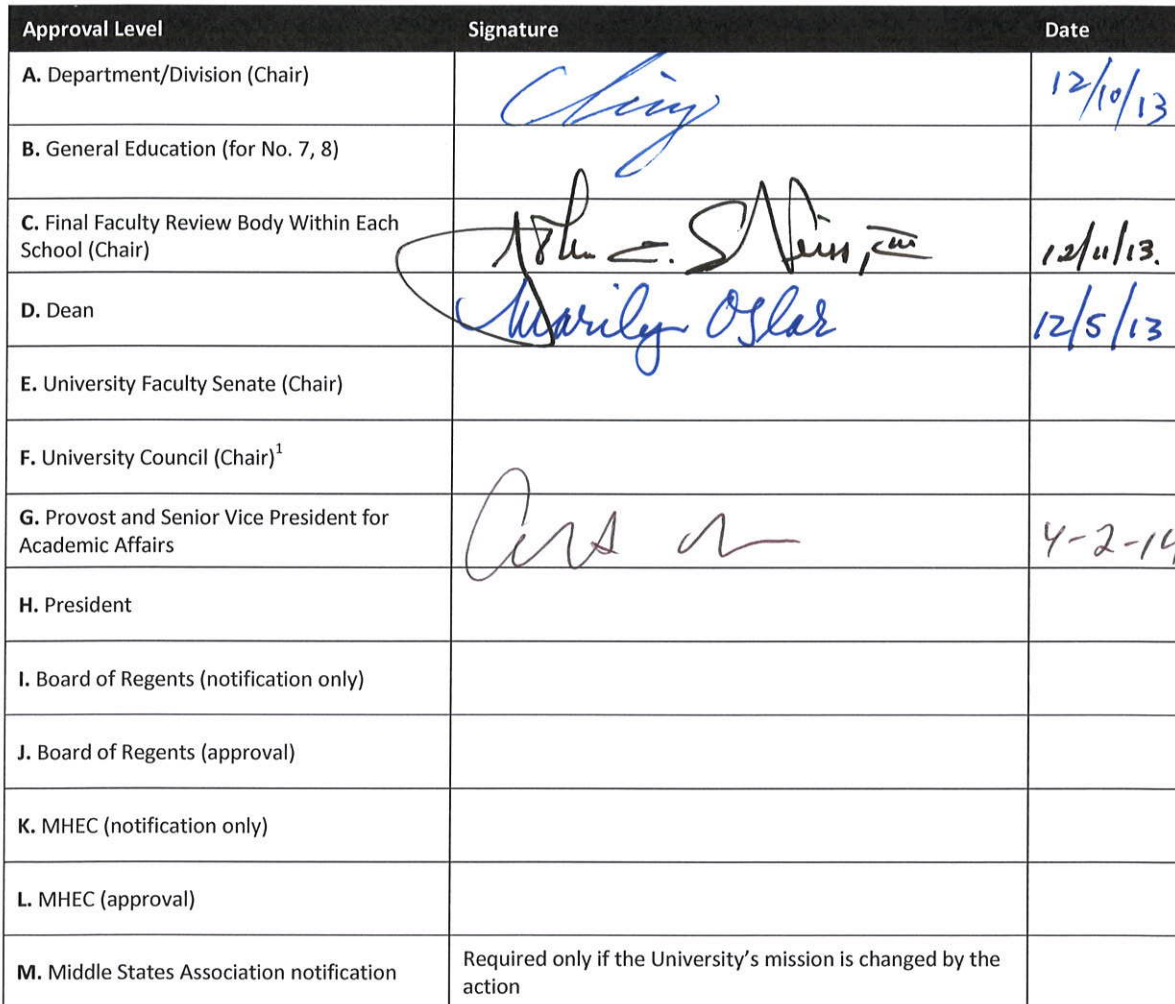 Approval Level Signature Date
A. Department/Division (Chair) 12/10/13
B. General Education (for No. 7, 8)
C. Final Faculty Review Body Within Each
School (Chair) 12/11/13.
D. Dean Marilyn Oslar 12/5/13
E. University Faculty Senate (Chair)
F. University Council (Chair)¹
G. Provost and Senior Vice President for
Academic Affairs 4-2-14
H. President
I. Board of Regents (notification only)
J. Board of Regents (approval)
K. MHEC (notification only)
L. MHEC (approval)
M. Middle States Association notification Required only if the University's mission is changed by the
action